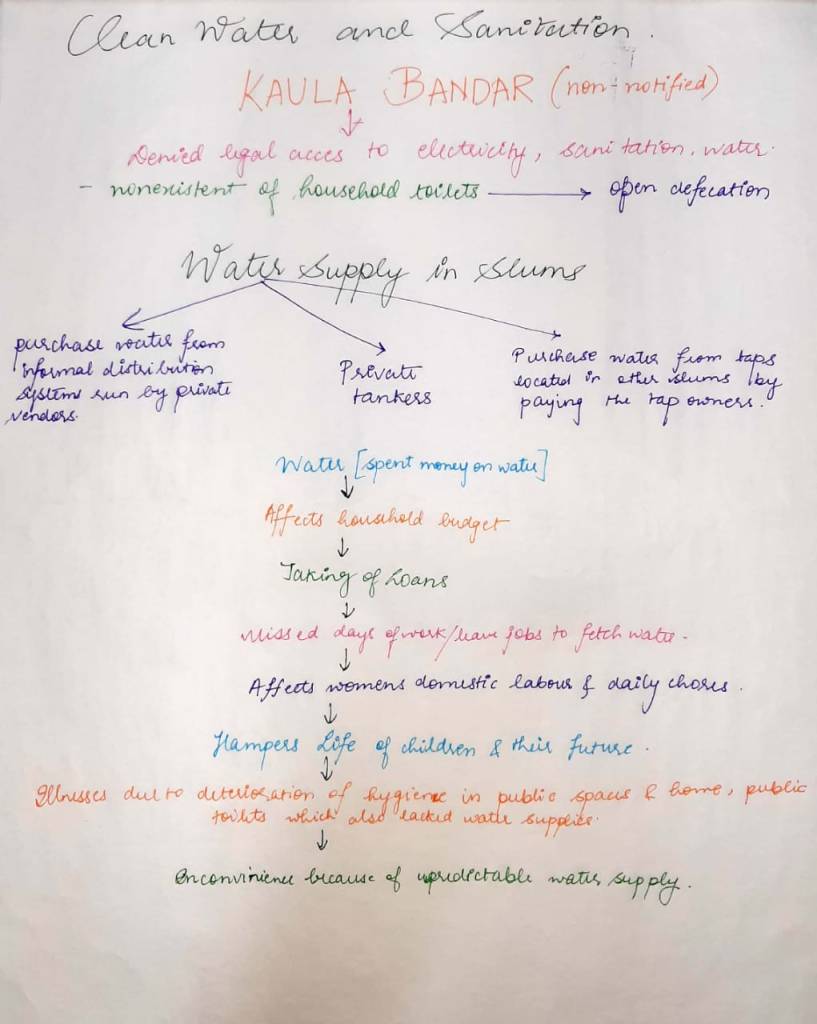 Clean Water and Sanitation.
KAULA BANDAR (non-notified)
Denied legal acces to electricity, sanitation, water.
- nonexistent of household toilets → open defecation
Water Supply in Slums
purchase water from
informal distribution
systems run by private
vendors.
Private
tankers
Purchase water from taps
located in other slums by
paying the tap owners.
Water [spent money on water]
↓
Affects household budget
↓
Taking of Loans
↓
Missed days of work/leave jobs to fetch water.
↓
Affects womens domestic labour & daily chores.
↓
Hampers Life of children & their future.
↓
Illnesses due to deterioration of hygiene in public spaces & home, public
toilets which also lacked water supplies.
↓
Inconvinience because of upredictable water supply.